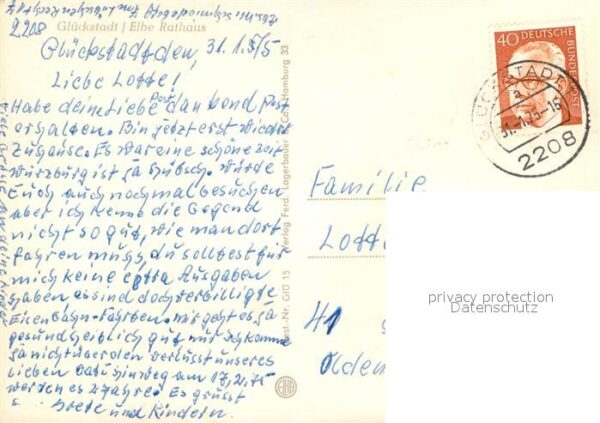 2208
Glückstadt / Elbe Rathaus
Glückstadt den, 31.1.5/5
Liebe Lotte!
Habe deine Liebe Post dankend Post
erhalten. Bin jetzt erst wieder
Zuhause. Es war eine schöne zeit
Würzburg ist ja hübsch. Würde
Euch auch nochmal besuchen
aber ich kenne die Gegend
nicht so gut, wie man dort
fahren muss, du solltest für
mich keine extra Ausgaben
haben es sind doch verbilligte
Eisenbahn-Fahrten. mir geht es ja
gesundheitlich gut nur ich komme
ja nicht über den verlusst unseres
lieben hinweg am 17,2,75
werden es 2 Jahre. Es grüsst
und Kindern.
Best.-Nr. Glü 15 Verlag Ferd. Lagerbauer & Co., Hamburg 33
40 DEUTSCHE BUNDESPOST
GLÜCKSTADT
a
31.-1.75-16
2208
Familie
Lotte
41
Olden
privacy protection
Datenschutz